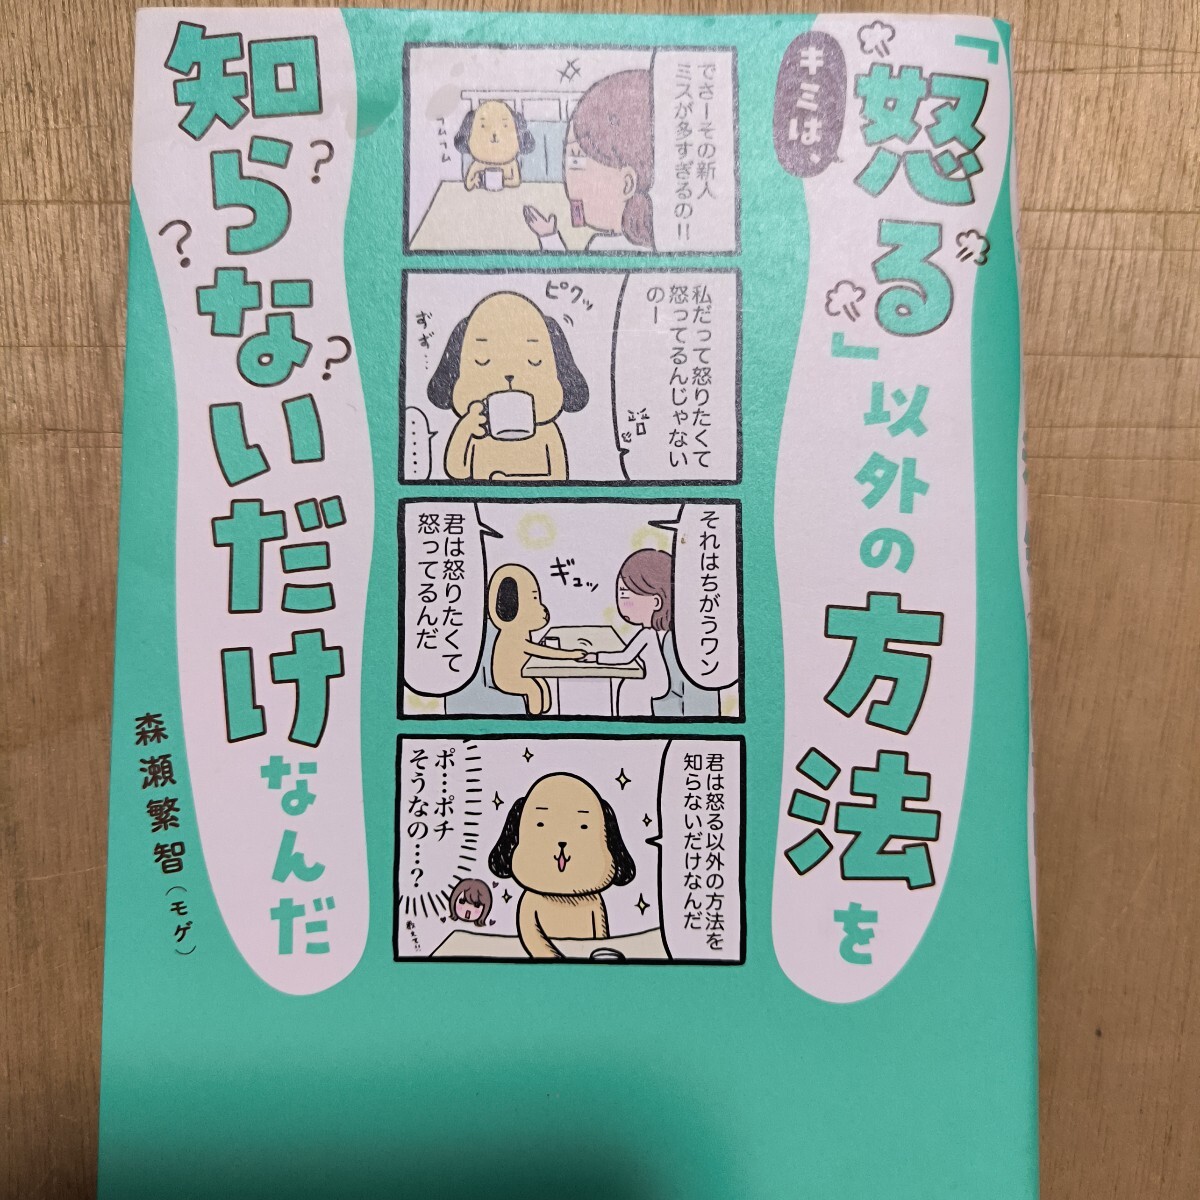 キミは、
「怒る」以外の方法を
知らないだけなんだ
?
?
?
森瀬繁智（モゲ）
でさーその新人
ミスが多すぎるの!!
フムフム
私だって怒りたくて
怒ってるんじゃない
のー
ピクッ
ずず…
……
それはちがうワン
ギュッ
君は怒りたくて
怒ってるんだ
君は怒る以外の方法を
知らないだけなんだ
ポ…ポチ
そうなの…?
教えて!!